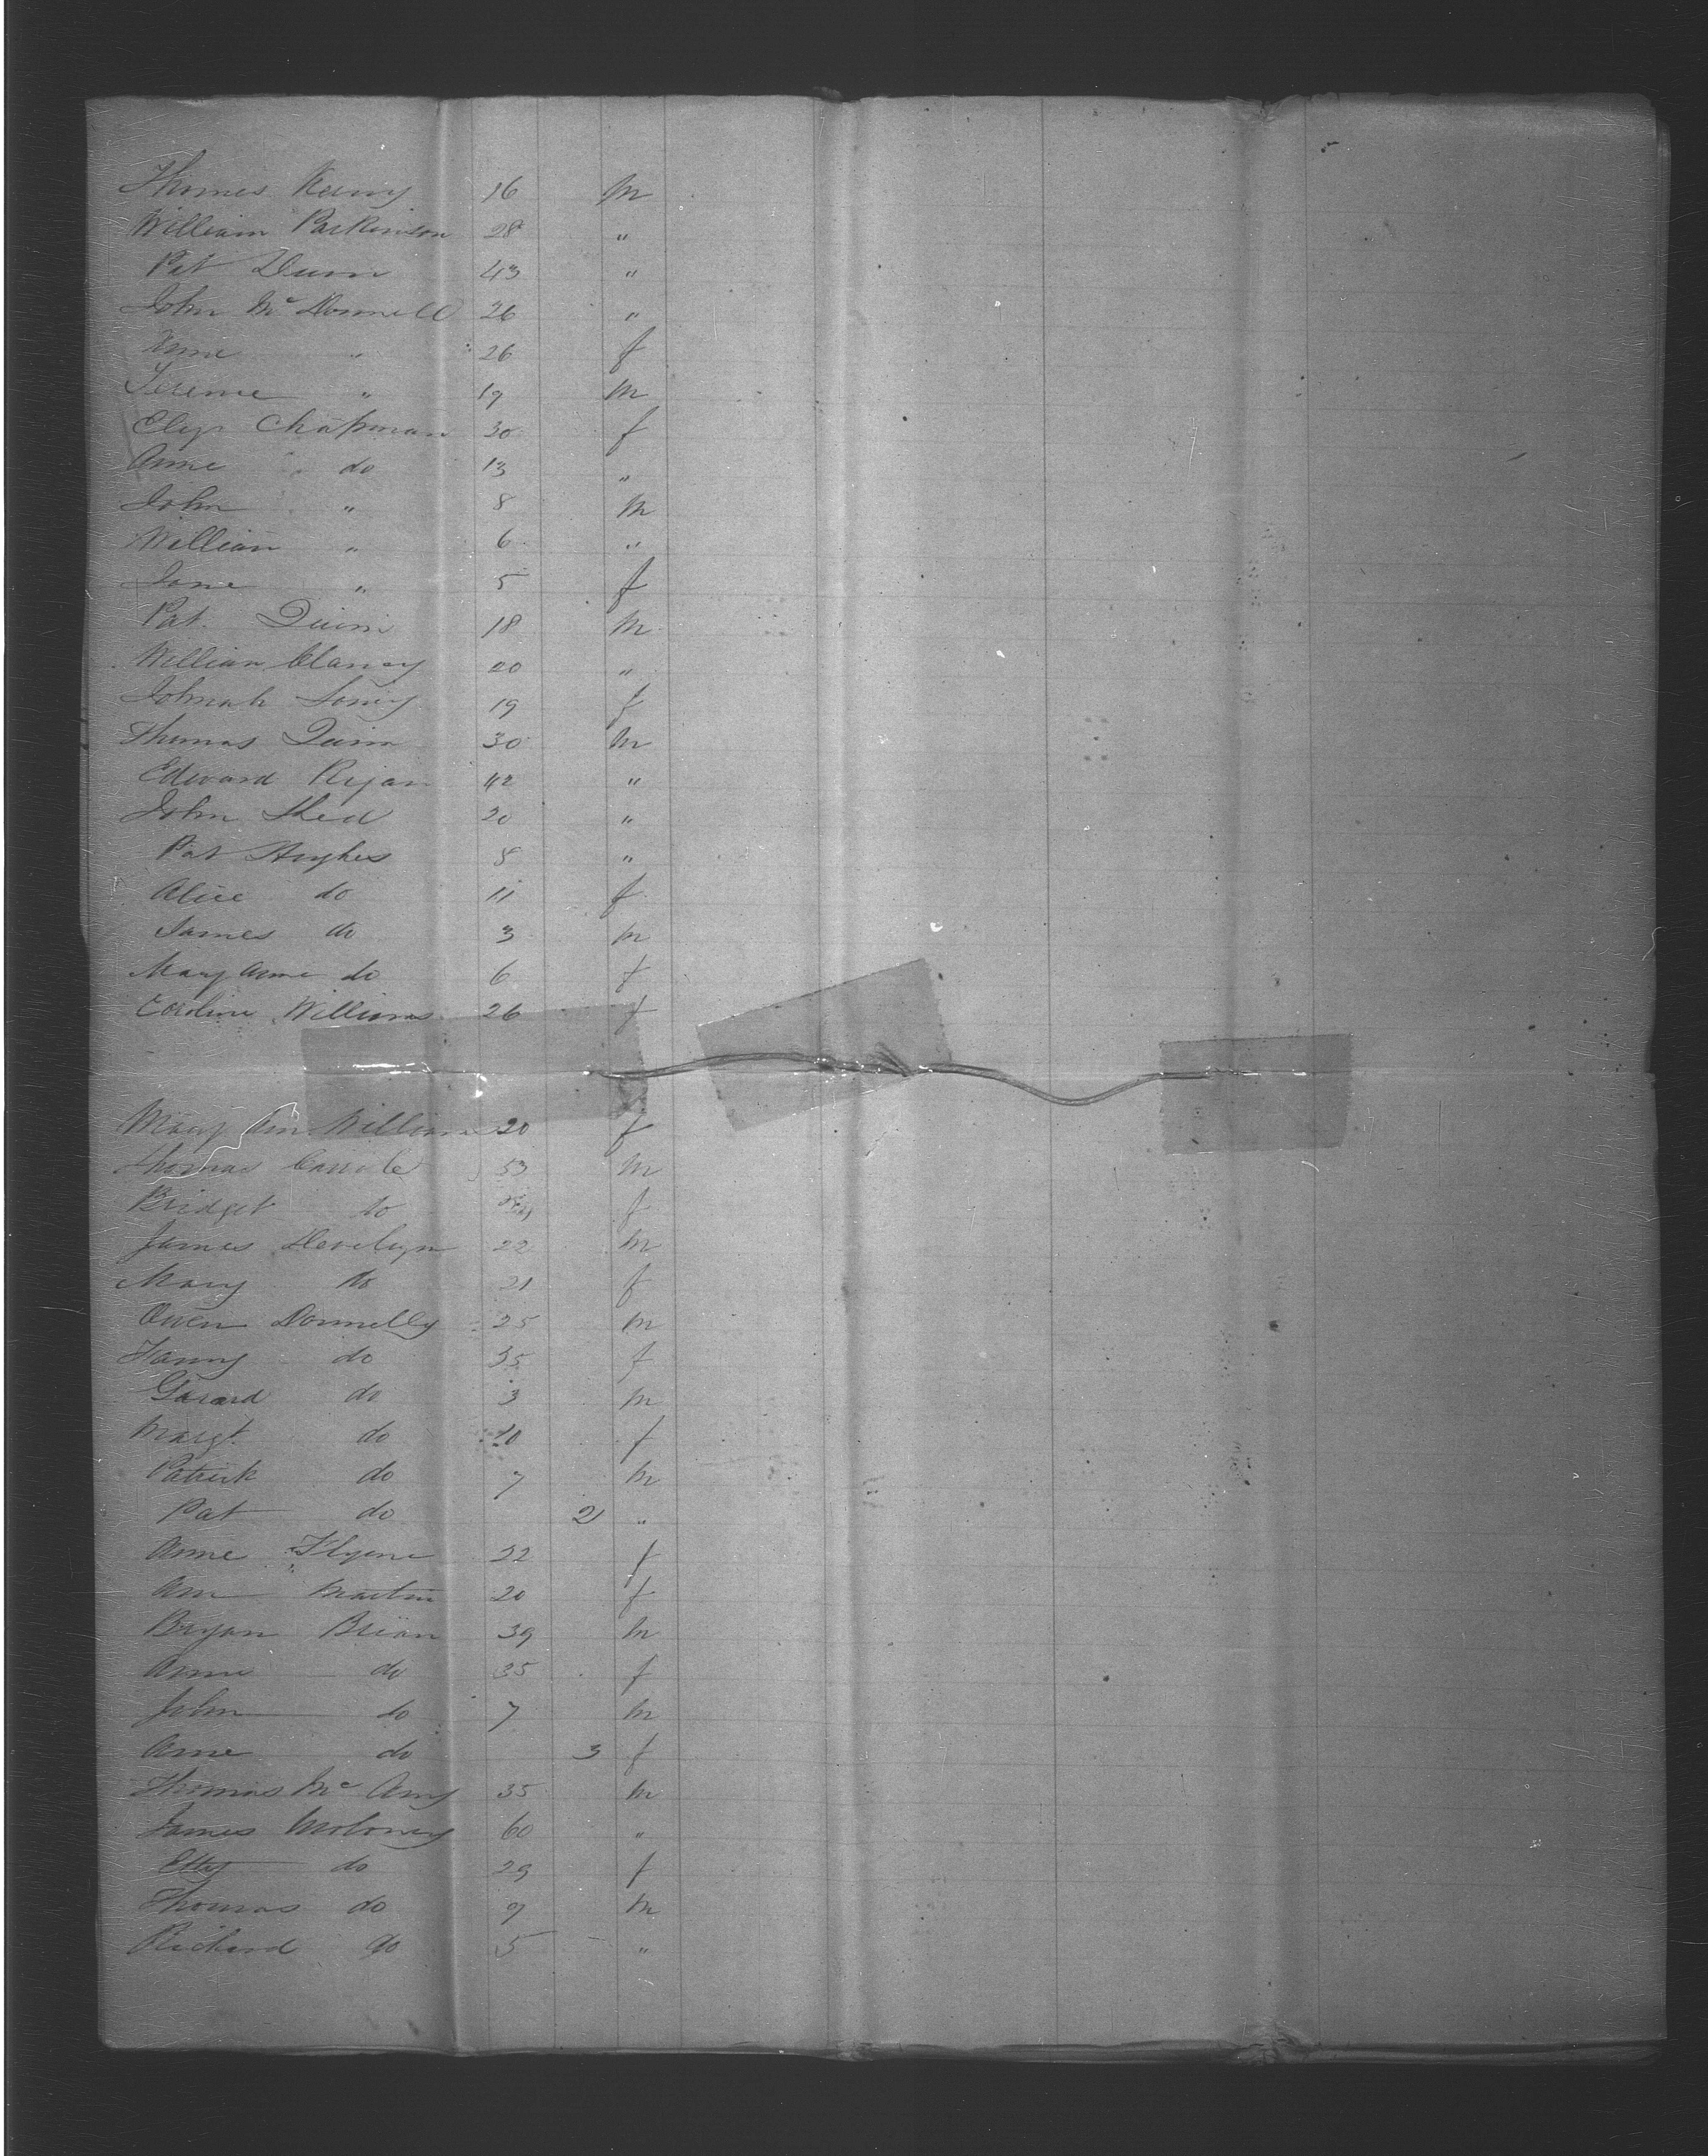 Thomas 26 m
William Parkinson 28 "
Pat Dunn 43 "
John McDonnell 26 "
Anne " 26 f
" 19 m
Chapman 30 f
Anne do 13 "
John " 8 m
William " 6 "
Jane " 5 f
Pat Quinn 18 m
William Clancy 20 "
19 f
Thomas Quinn 30 m
Edward Ryan 42 "
John 20 "
Pat Hughes 8 "
Alice do 11 f
James do 3 m
Mary Anne do 6 f
Caroline Williams 26 f
Mary Ann Williams 20 f
Thomas 53 m
Bridget do f
James Develyn 22 m
Mary do 21 f
Owen Donnelly 25 m
Fanny do 35 f
Garard do 3 m
Margt. do 10 f
Patrick do 7 m
Pat do 2 "
Anne 22 f
Ann Martin 20 f
Bryan Brian 39 m
Anne do 35 f
John do 7 m
Anne do 3 f
Thomas Mc 35 m
James Moloney 60 "
do 29 f
Thomas do 9 m
Richard do 5 "